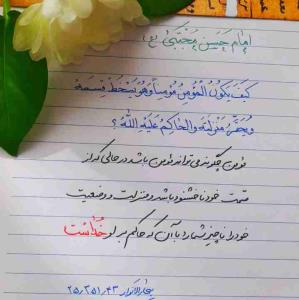 امام حَسَن مجتبی (ع)
کَیفَ یَکُونُ المُؤمِنُ مُؤمِناً وَ هُوَ یَسخَطُ قِسمَهُ
وَ یُحَقِّرُ مَنزِلَتَهُ وَ الحاکِمُ عَلَیهِ اللّٰهُ؟
مؤمن چگونه می تواند مؤمن باشد در حالی که از
قسمت خود ناخشنود باشد و منزلت و وضعیت
خود را ناچیز شمارد با آن که حاکم بر او خداست
بحارالانوار ۲۵/۳۵۱/۴۳